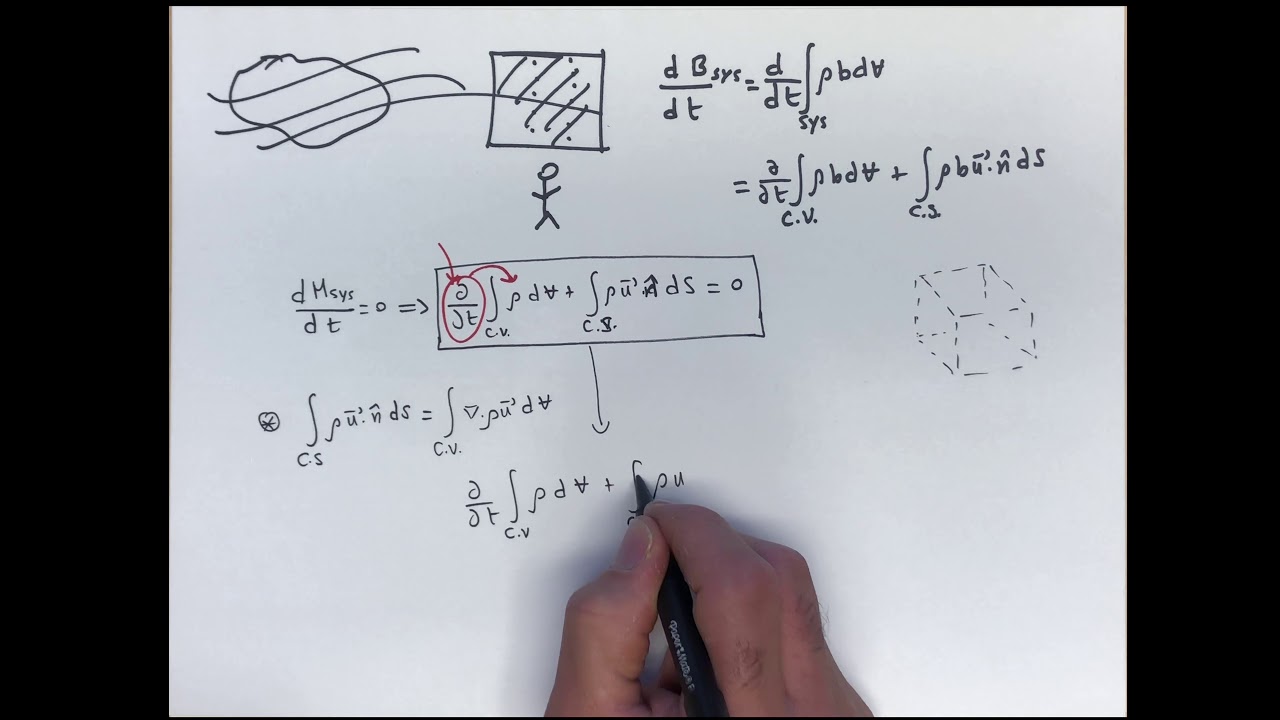 dB_sys/dt = d/dt ∫_sys ρbd∀
= ∂/∂t ∫_C.V. ρbd∀ + ∫_C.S. ρbu⃗·n̂ds
dM_sys/dt = 0 ⇒ ∂/∂t ∫_C.V. ρd∀ + ∫_C.S. ρu⃗·n̂ds = 0
⊛ ∫_C.S ρu⃗·n̂ds = ∫_C.V. ∇·ρu⃗d∀
∂/∂t ∫_C.V ρd∀ + ∫ ρu